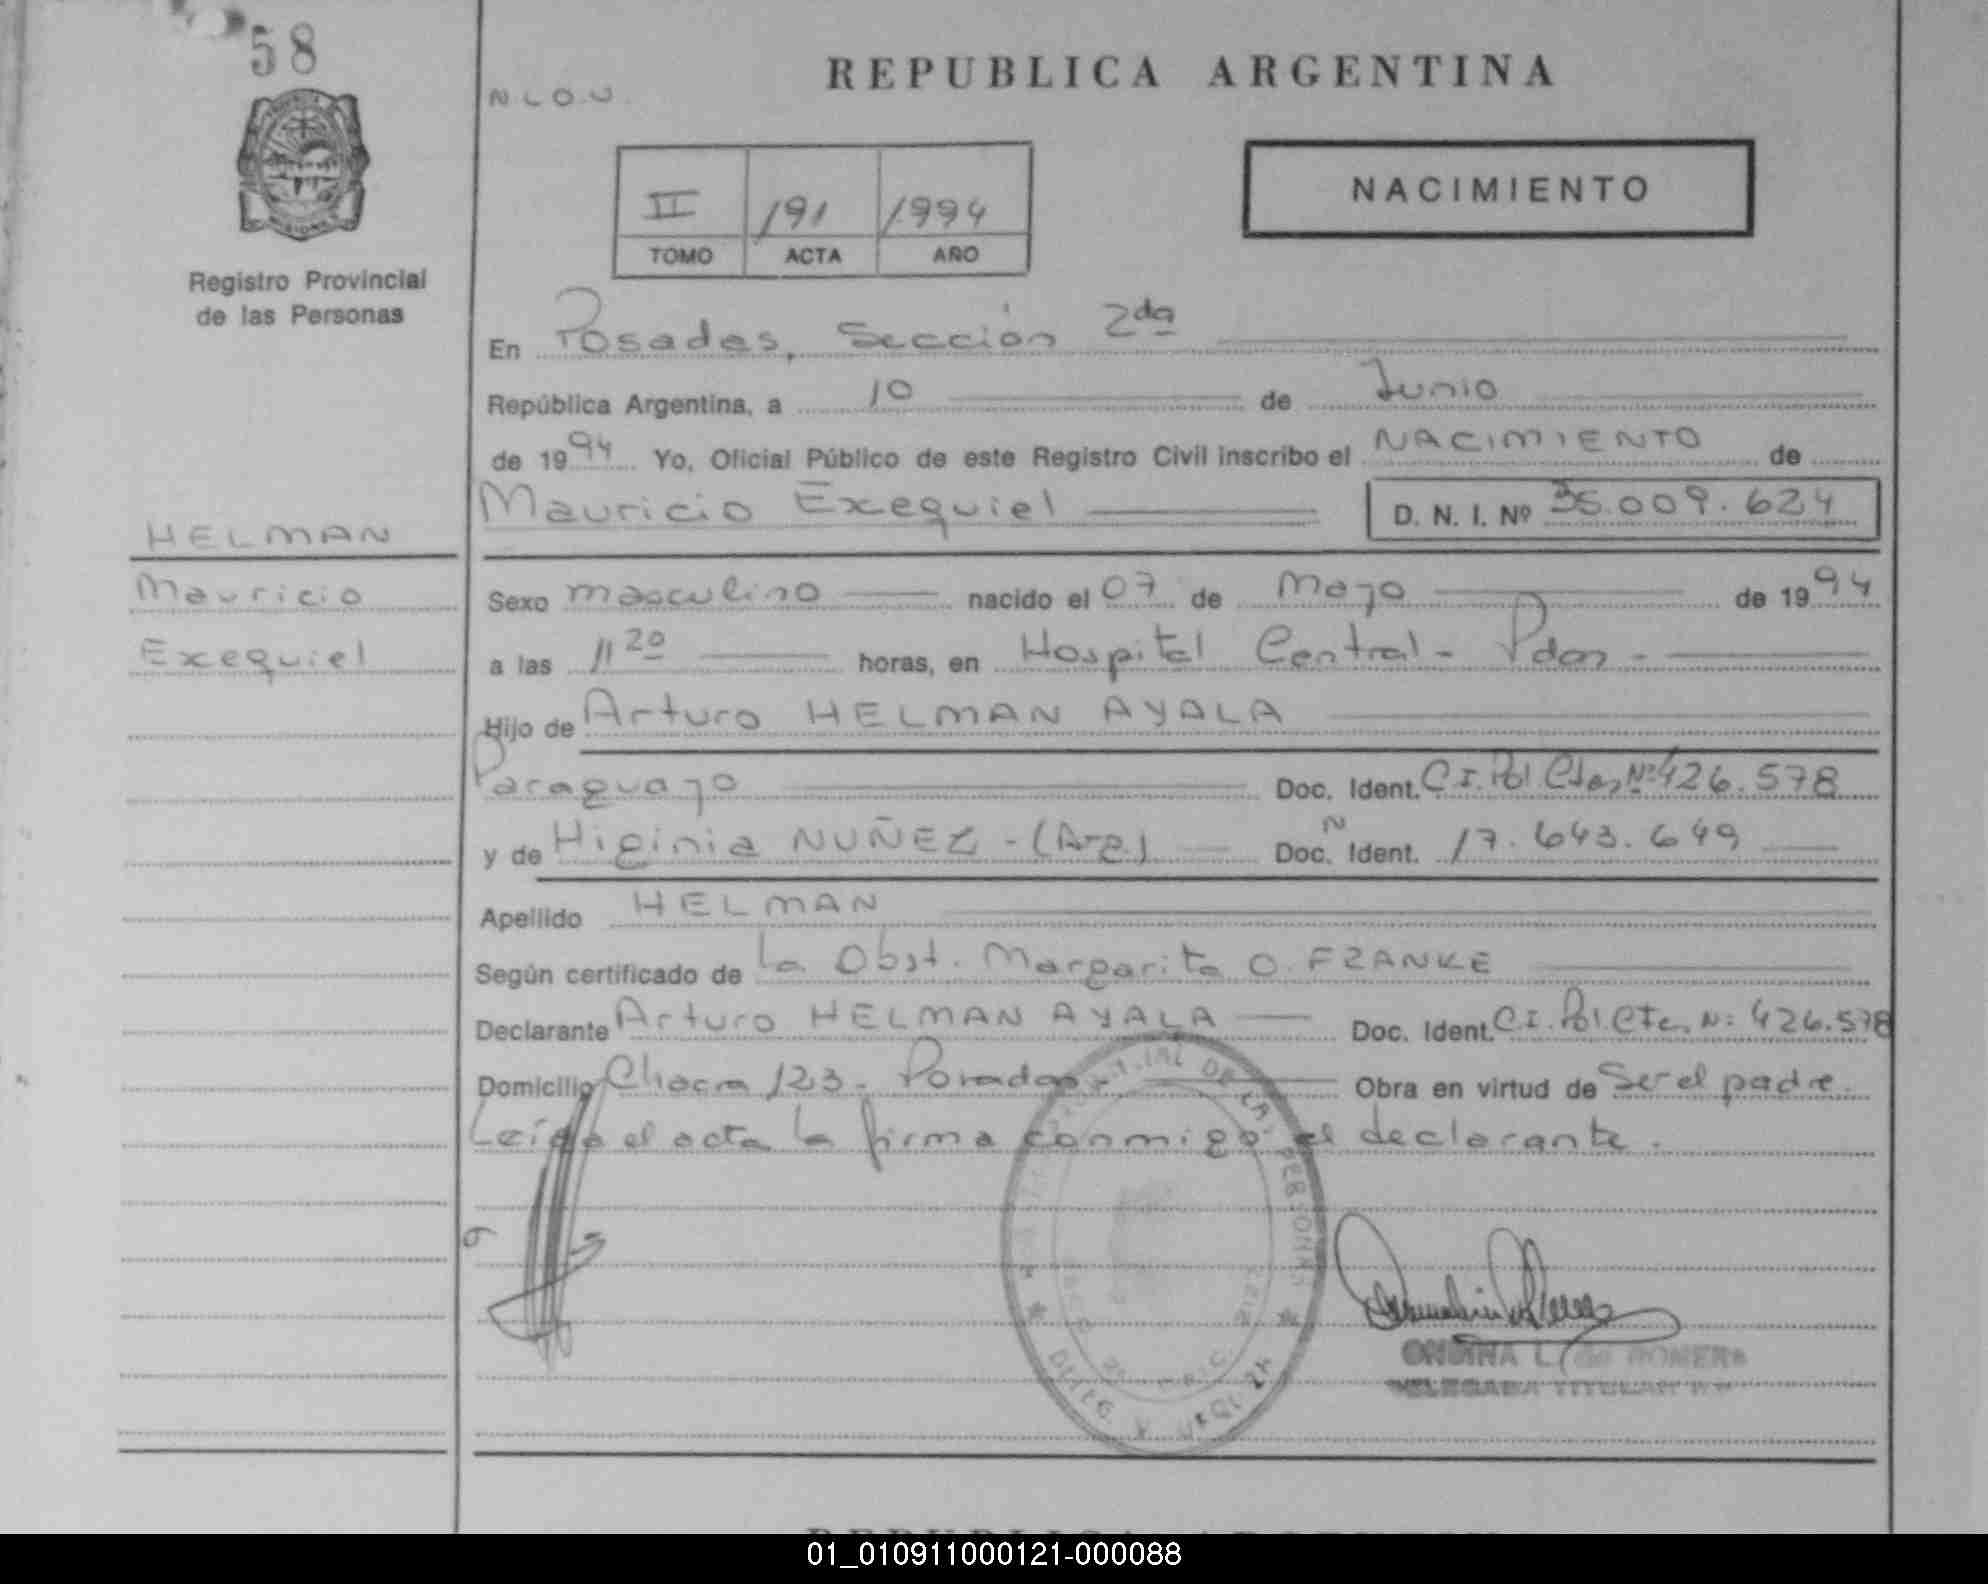 58
N L O U
REPUBLICA ARGENTINA
NACIMIENTO
II 191 1994
TOMO ACTA AÑO
Registro Provincial
de las Personas
En Posadas, Sección 2da
República Argentina, a 10 de Junio
de 1994 Yo, Oficial Público de este Registro Civil inscribo el NACIMIENTO de
Mauricio Exequiel D. N. I. Nº 35.009.624
HELMAN
Mauricio
Exequiel
Sexo masculino nacido el 07 de Mayo de 1994
a las 11 20 horas, en Hospital Central - Pdas -
Hijo de Arturo HELMAN AYALA
Paraguayo Doc. Ident. C.I. Pol. Ctes Nº 426.578
y de Higinia NUÑEZ - (Arg.) Doc. N Ident. 17.643.649
Apellido HELMAN
Según certificado de la Obst. Margarita O. FRANKE
Declarante Arturo HELMAN AYALA Doc. Ident. C.I. Pol. Ctes. N: 426.578
Domicilio Chacra 123 - Posadas - Obra en virtud de Ser el padre.
Leída el acta la firma conmigo el declarante.
DE LAS PERSONAS
ONDINA L. de ROMERO
DELEGADA TITULAR
REPUBLICA ARGENTINA
01_010911000121-000088